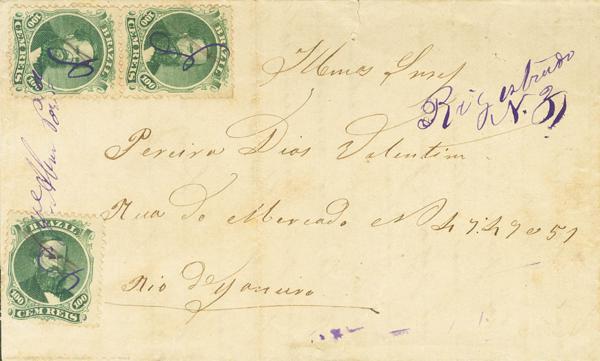 BRAZIL
100 100
CEM REIS
BRAZIL
100 100
CEM REIS
Illmos Snres
Rigestrado
N. 3
Pereira Dios Valentim
Rua do Mercado N 47, 49 e 51
Rio d'Janeiro
BRAZIL
100 100
CEM REIS